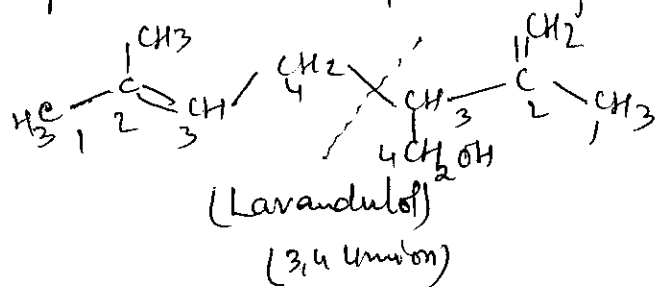 CH3 CH2
H3C C CH CH2 CH C CH3
1 2 3 4 3 2 1
4 CH2OH
(Lavandulol)
(3,4 Union)